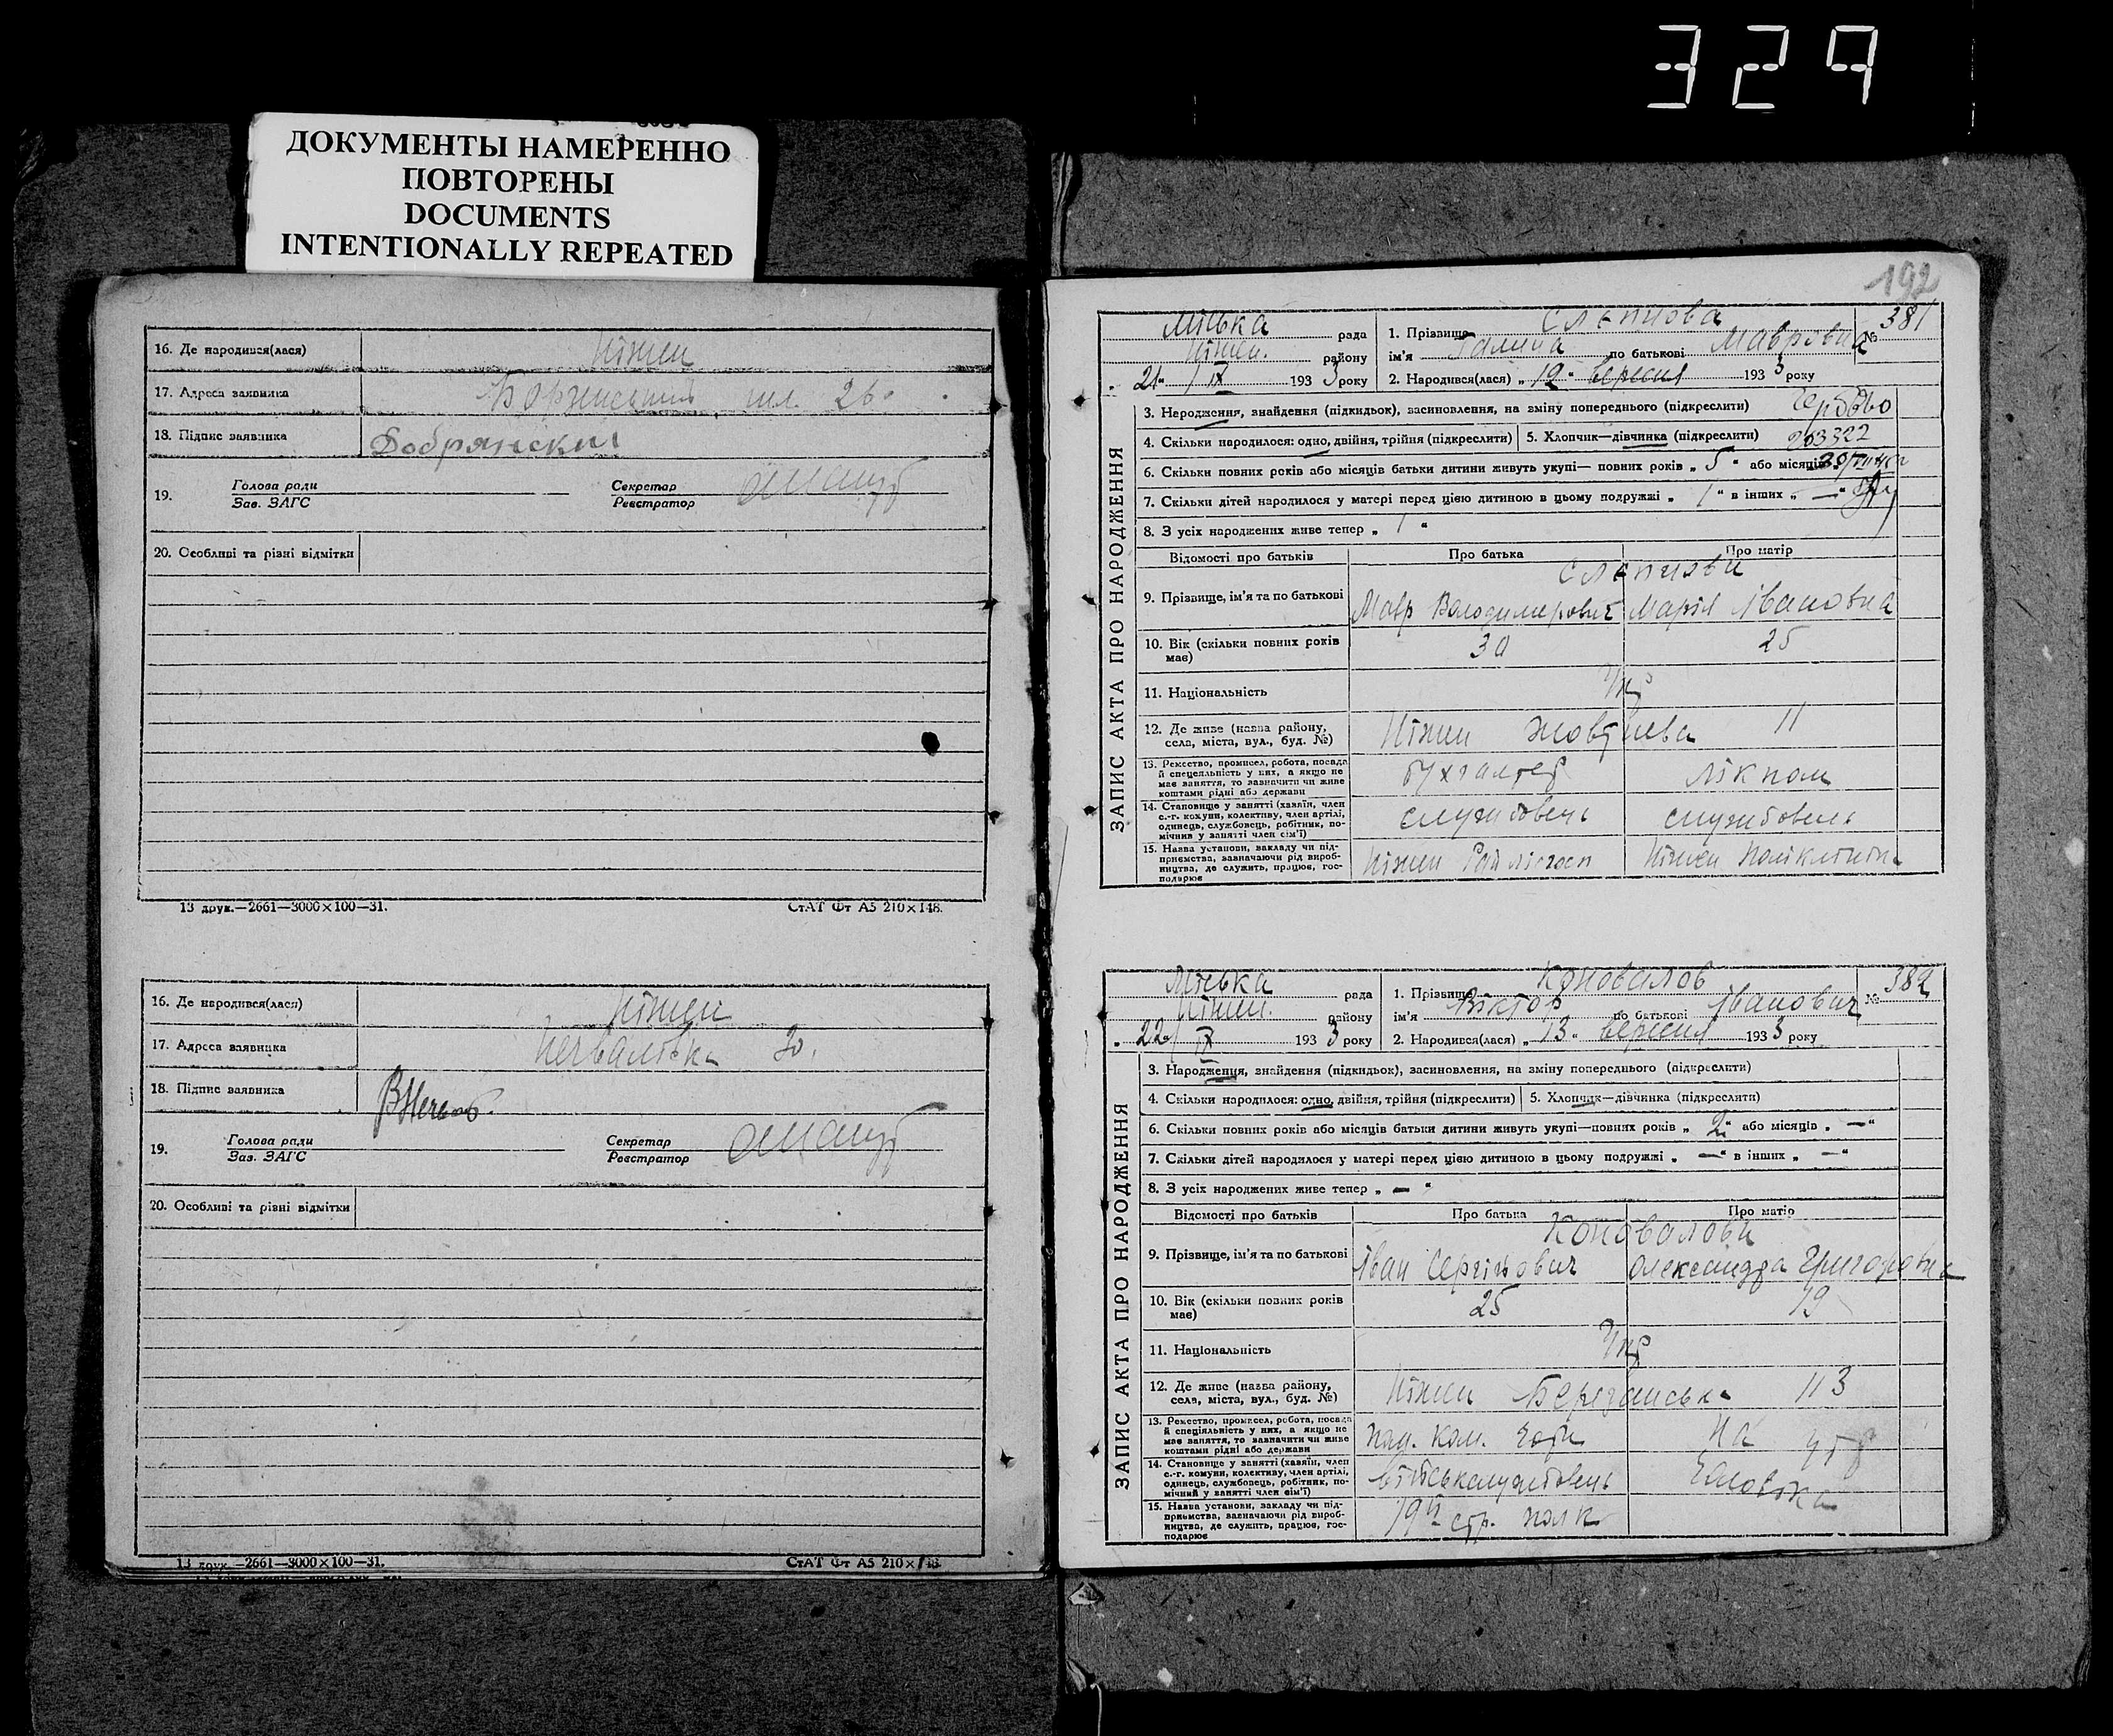 329
ДОКУМЕНТЫ НАМЕРЕННО
ПОВТОРЕНЫ
DOCUMENTS
INTENTIONALLY REPEATED
16. Де народився(лася) Ніжен
17. Адреса заявника шл. 26.
18. Підпис заявника Добрянский
19. Голова ради
Зав. ЗАГС
Секретар
Реєстратор
20. Особливі та різні відмітки
13 друк.—2661—3000×100—31. СтАТ Фт А5 210×148.
16. Де народився(лася) Ніжен
17. Адреса заявника 30.
18. Підпис заявника
19. Голова ради
Зав. ЗАГС
Секретар
Реєстратор
20. Особливі та різні відмітки
13 друк.—2661—3000×100—31. СтАТ Фт А5 210×148.
192
ЗАПИС АКТА ПРО НАРОДЖЕННЯ
Міська рада
Ніжен. району
„ 21 “ / IX 193 3 року
1. Прізвище Слєпцова № 381
ім'я Галина по батькові Мавровна
2. Народився(лася) „ 12 “ вересня 193 3 року
3. Нерождення, знайдення (підкидьок), засиновлення, на зміну попереднього (підкреслити)
4. Скільки народилося: одно, двійня, трійня (підкреслити) 5. Хлопчик—дівчинка (підкреслити) 203322
6. Скільки повних років або місяців батьки дитини живуть укупі— повних років „ 5 “ або місяців
7. Скільки дітей народилося у матері перед цією дитиною в цьому подружжі „ 1 “ в інших „ — “
8. З усіх народжених живе тепер „ 1 “
Відомості про батьків Про батька Про матір
Слєпцови
9. Прізвище, ім'я та по батькові Мавр Володимерович Марія Івановна
10. Вік (скільки повних років має) 30 25
11. Національність Укр
12. Де живе (назва району, села, міста, вул., буд. №) Ніжен Жовтнева 11
13. Ремество, промисел, робота, посада й спеціяльність у них, а якщо не має заняття, то зазначити чи живе коштами рідні або держави бухгалтер Лікпом
14. Становище у занятті (хазяїн, член с.-г. комуни, колективу, член артілі, одинець, службовець, робітник, помічник у занятті член сім'ї) службовець службовець
15. Назва установи, закладу чи підприємства, зазначаючи рід виробництва, де служить, працює, господарює Ніжен Райлісгосп Ніжен Поліклініка
ЗАПИС АКТА ПРО НАРОДЖЕННЯ
Міська рада
Ніжен. району
„ 22 “ / IX 193 3 року
1. Прізвище Коновалов № 382
ім'я Віктор по батькові Іванович
2. Народився(лася) „ 13 “ вересня 193 3 року
3. Народження, знайдення (підкидьок), засиновлення, на зміну попереднього (підкреслити)
4. Скільки народилося: одно, двійня, трійня (підкреслити) 5. Хлопчик—дівчинка (підкреслити)
6. Скільки повних років або місяців батьки дитини живуть укупі—повних років „ 2 “ або місяців „ — “
7. Скільки дітей народилося у матері перед цією дитиною в цьому подружжі „ — “ в інших „ — “
8. З усіх народжених живе тепер „ — “
Відомості про батьків Про батька Про матір
Коновалови
9. Прізвище, ім'я та по батькові Іван Сергійович Олександра Григоровна
10. Вік (скільки повних років має) 25 19
11. Національність Укр
12. Де живе (назва району, села, міста, вул., буд. №) Ніжен 113
13. Ремество, промисел, робота, посада й спеціяльність у них, а якщо не має заняття, то зазначити чи живе коштами рідні або держави На утр
14. Становище у занятті (хазяїн, член с.-г. комуни, колективу, член артілі, одинець, службовець, робітник, помічник у занятті член сім'ї) військслужбовець Чоловіка
15. Назва установи, закладу чи підприємства, зазначаючи рід виробництва, де служить, працює, господарює стр. полк